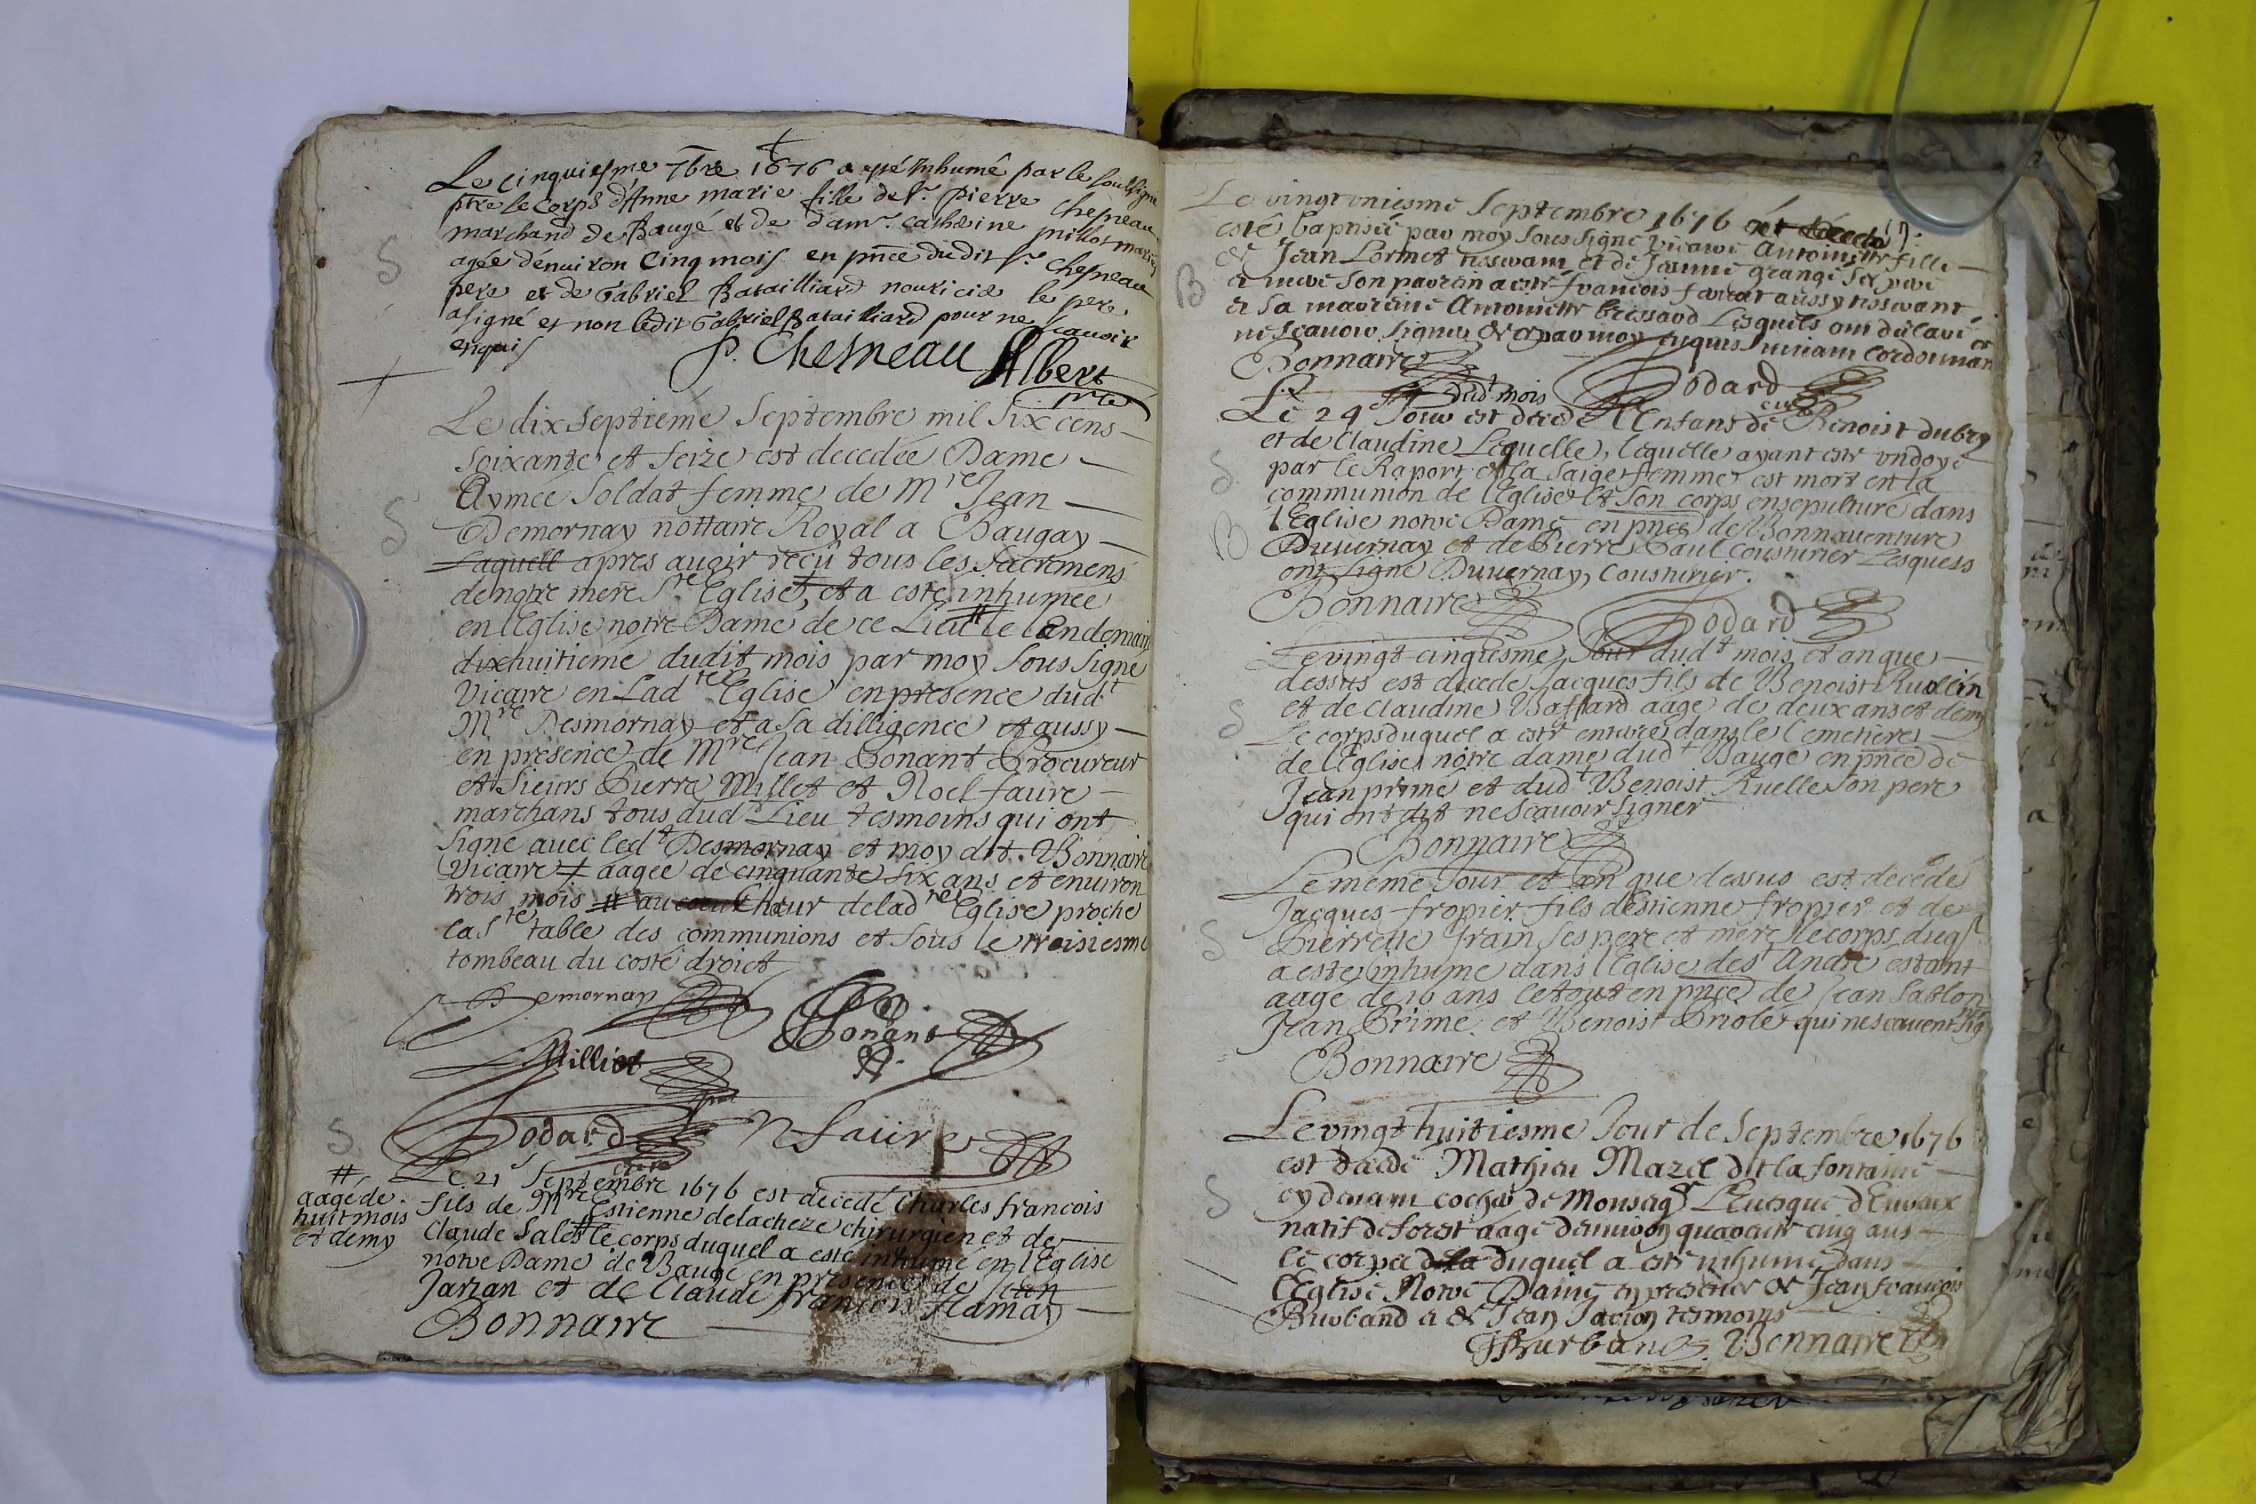 Le cinquiesme 7bre 1676 a esté Inhumé par le soubsigné
ptre le corps d'Anne marie fille de Sr. Pierre Chesneau
marchand de Baugé et de dam.e Catherine millot mariés
agée d'enuiron Cinq mois en pnce dudit Sr. Chesneau
pere et de Gabriel Batailliard nouricié le pere
a signé et non ledit Gabriel Batailliard pour ne scauoir
enquis
P. Chesneau Albert
ptre
S
Le dix septieme Septembre mil six cens
soixante et seize est decedée Dame
Aymée Soldat femme de Mre Jean
Demornay nottaire Royal a Baugay
Laquelle apres auoir reçû tous les sacremens
de notre mere Ste Eglise, et a este inhumee
en l'Eglise notre Dame de ce Lieu # le landemain
dixhuitieme dudit mois par moy sous signé
Vicaire en Ladtte Eglise en presence dudt
Mre Desmornay et a sa dilligence et aussy
en presence de Mre Jean Ponant Procureur
et Sieurs Pierre Millet et Noel faure
marchans tous dudt Lieu tesmoins qui ont
signé auec ledt Desmornay et moy dit Bonnaire
Vicaire + aagée de cinquante six ans et enuiron
trois mois # au Chœur de ladtte Eglise proche
la Ste table des communions et sous le troisiesme
tombeau du costé droict
S
Demornay Ponant
Milliet
Godard N faure
S
Le 21 Septembre 1676 est decedé Charles francois
fils de Mre Estienne delacheze chirurgien et de
Claude Sales # le corps duquel a esté inhumé en l'Eglise
notre Dame de Baugé en presence de Jean
Jarzan et de Claude francois flaman
Bonnaire
#
aagé de
huit mois
et demy
Le vingt uniesme Septembre 1676
esté baptisée par moy sous signé vicaire Antoinette fille
de Jean Lormet tisserant et de Jeanne grange ses pere
et mere son parrain a esté francois aussy tisserant
et sa marreine Antoinette brissard Lesquels ont declaré
ne scauoir signer de ce par moy enquis suiuant l'ordonnan
ce
B
Bonnaire Godard
Le 24 Jour dudt mois est decedé l'Enfans de Benoist dubry
et de Claudine Lequelle, lequelle ayant este undoyé
par le Raport de la saige femme est mort en la
communion de l'Eglise et son corps ensepulturé dans
l'Eglise notre Dame en pnce de Bonnauenture
Duuernay et de Pierre Paul Cousturier Lesquels
ont signé Duuernay, Cousturier.
S
B
Bonnaire Godard
Le vingt cinqiesme Jour dudt mois et an que
dessus est decedé Jacques fils de Benoist Ruellin
et de Claudine Baffard aagé de deux ans et demy
Le corps duquel a esté enterré dans le Cemetiere
de l'Eglise notre dame dudt Baugé en pnce de
Jean primé et dudt Benoist Ruelle son pere
qui ont dit ne scauoir signer
S
Bonnaire
Le meme Jour et an que dessus est decedé
Jacques fropier fils d'Estienne fropier et de
Pierrette Jrain ses pere et mere le corps duql
a este inhumé dans l'Eglise de St André estant
aagé de 10 ans le tout en pnce de Jean Sablon
Jean Primé et Benoist Briole qui ne scauent sig
ner
S
Bonnaire
Le vingt huitiesme Jour de Septembre 1676
est decedé Mathieu Mazel dit la fontaine
cy deuant cocher de Monseigr L'Euesque d'Euraux
natif de forest aagé d'enuiron quarante cinq ans
le corps duquel a esté inhumé dans
l'Eglise Notre Dame en presence de Jean francois
Burband et de Jean Jacion tesmoins
S
JfBurband Bonnaire